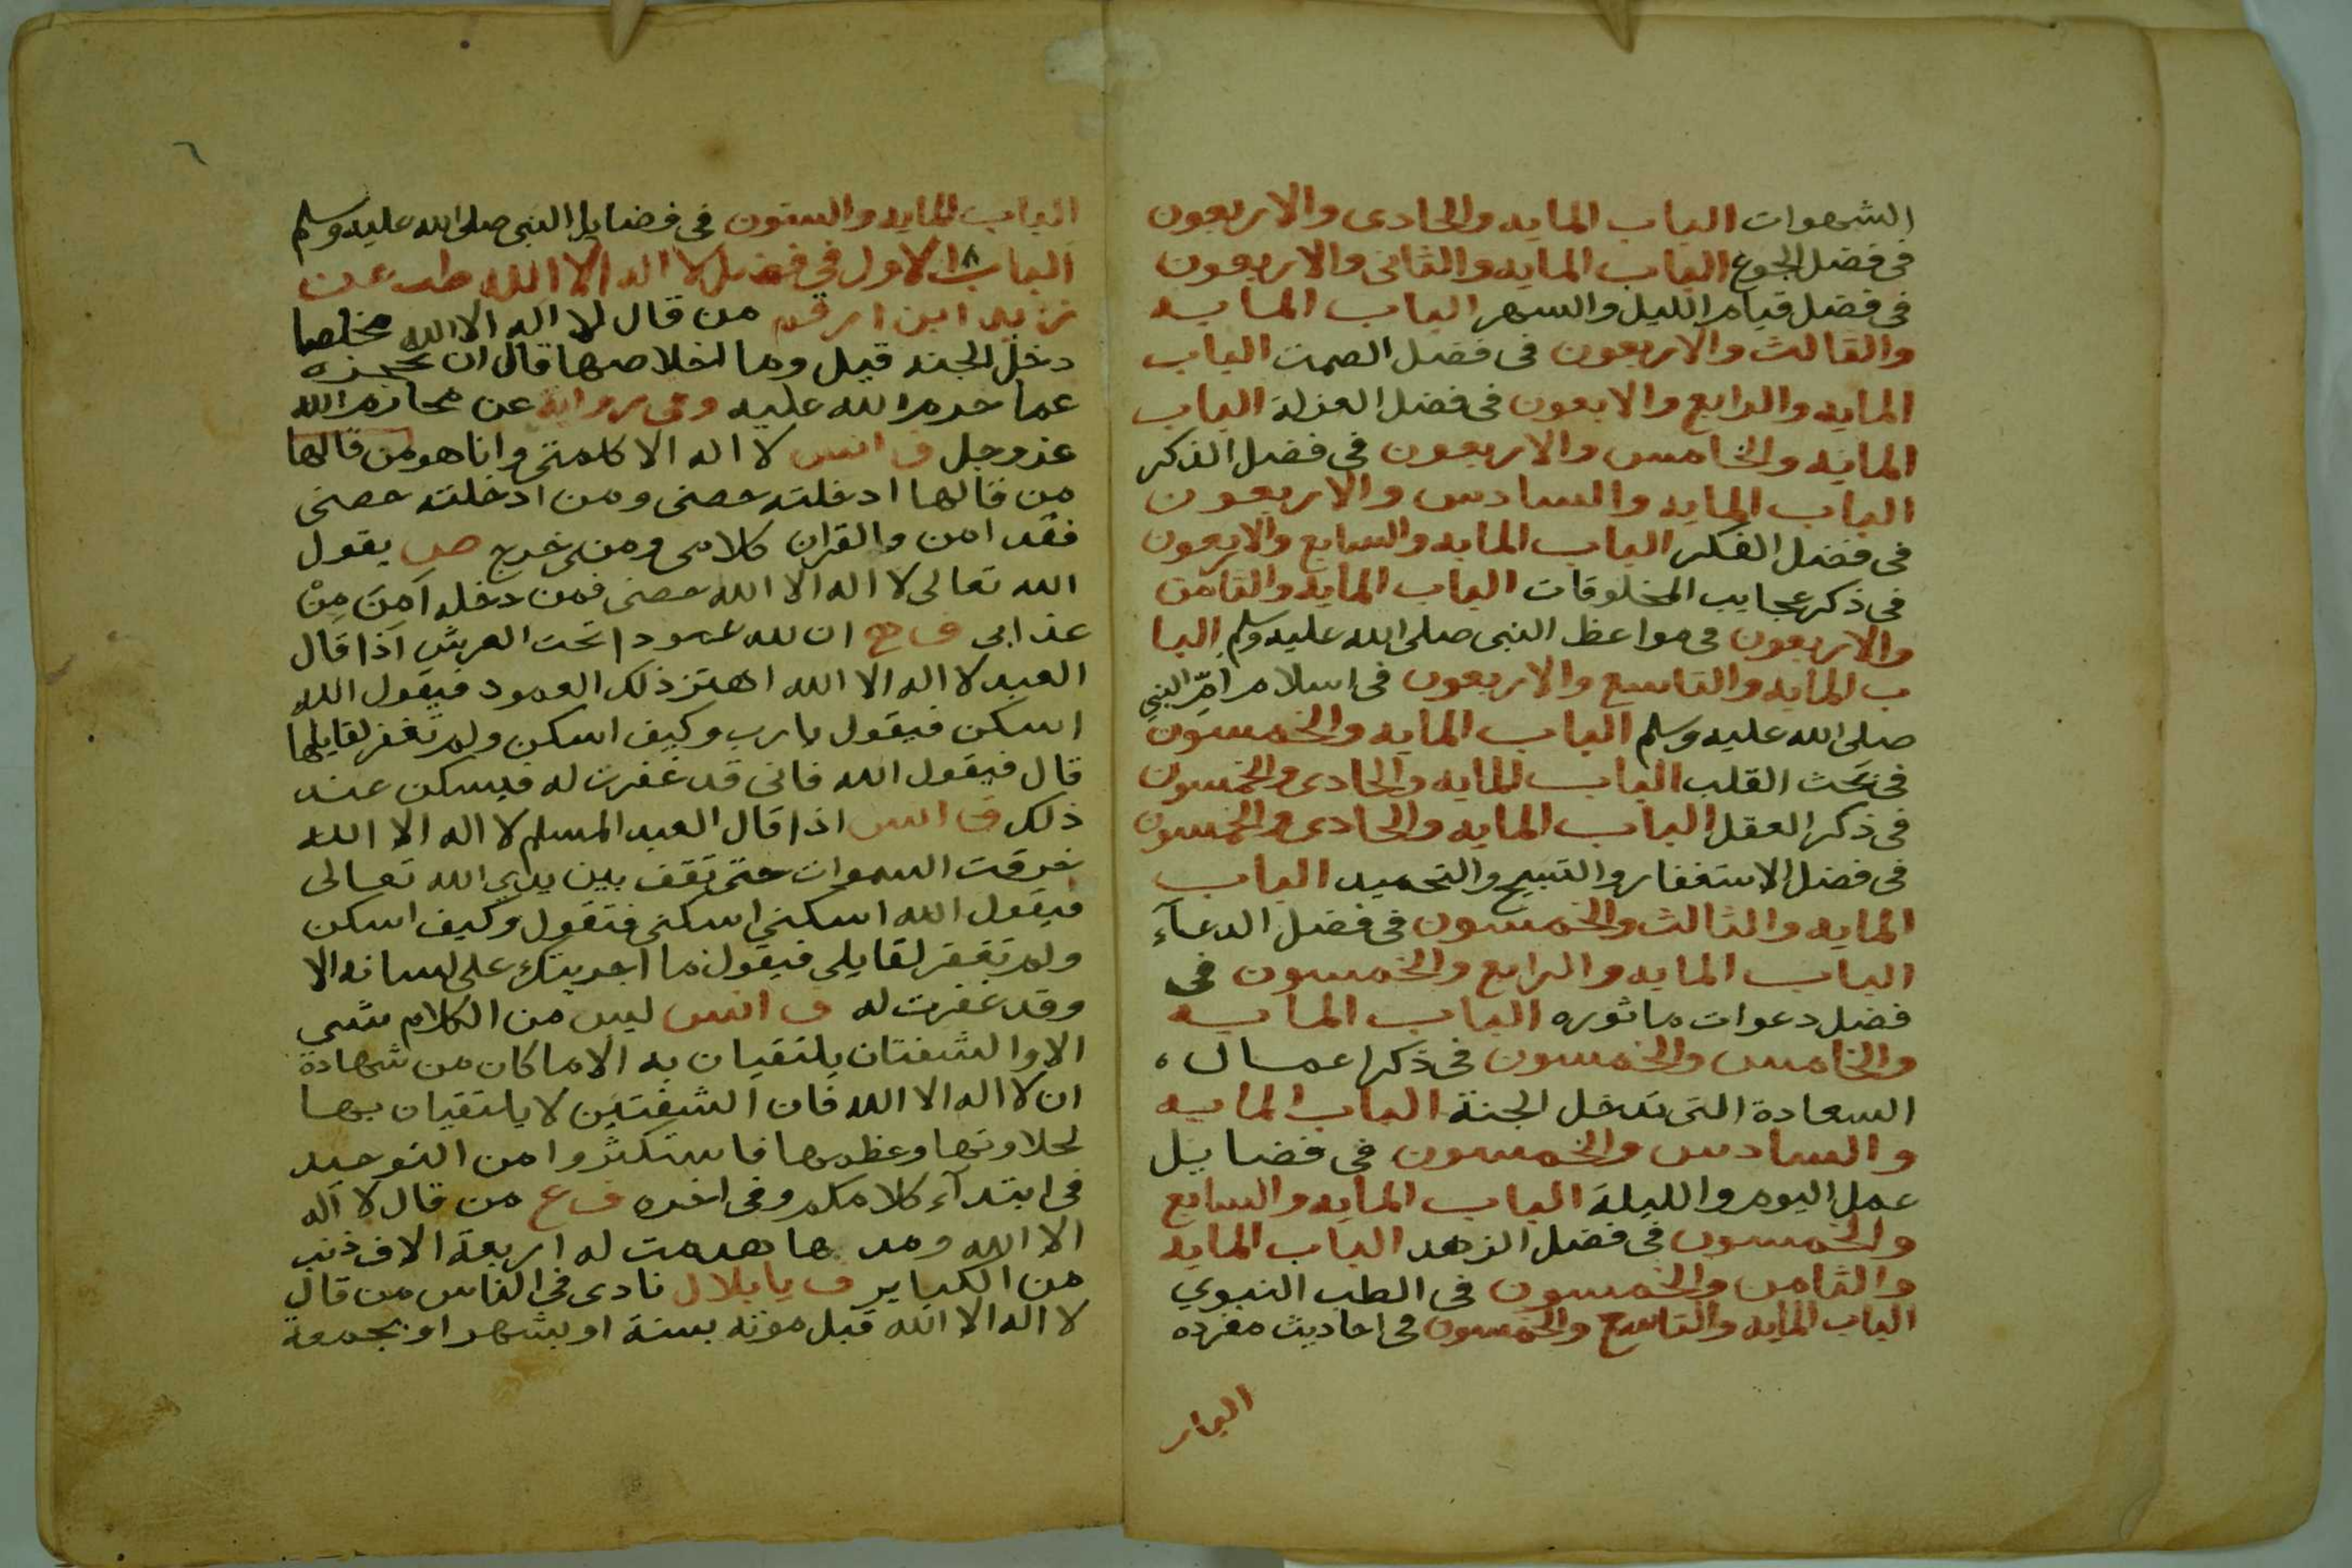 الشهوات الباب المايه والحادى والاربعون
فى فضل الجوع الباب المايه والثانى والاربعون
فى فضل قيام الليل والسهر الباب المايه
والثالث والاربعون فى فضل الصمت الباب
المايه والرابع والابعون فى فضل العزلة الباب
المايه والخامس والاربعون فى فضل الذكر
الباب المايه والسادس والاربعون
فى فضل الفكر الباب المايه والسابع والاربعون
فى ذكر عجايب المخلوقات الباب المايه والثامن
والاربعون فى مواعظ النبى صلى الله عليه وسلم البا
ب المايه والتاسع والاربعون فى اسلام امّ النبي
صلى الله عليه وسلم الباب المايه والخمسون
فى بحث القلب الباب المايه والحادى والخمسون
فى ذكر العقل الباب المايه والحادى والخمسون
فى فضل الاستغفار والتسبيح والتحميد الباب
المايه والثالث والخمسون فى فضل الدعآء
الباب المايه والرابع والخمسون فى
فضل دعوات ماثوره الباب المايه
والخامس والخمسون فى ذكر اعمال
السعادة التى تدخل الجنة الباب المايه
والسادس والخمسون فى فضايل
عمل اليوم والليلة الباب المايه والسابع
والخمسون فى فضل الزهد الباب المايه
والثامن والخمسون فى الطب النبوي
الباب المايه والتاسع والخمسون فى احاديث مفرده
٦
الباب المايه والستون فى فضايل النبى صلى الله عليه وسلم
الباب الاول في فضل لا اله الا الله طب عن
زيد ابن ارقم من قال لا اله الا الله مخلصا
دخل الجنه قيل وما اخلاصها قال ان تحجزه
عما حرم الله عليه وفى رواية عن محارم الله
عز وجل ف انس لا اله الا كلمتى وانا هو من قالها
من قالها ادخلته حصنى ومن ادخلته حصنى
فقد امن والقران كلامى ومنى خرج ص يقول
الله تعالى لا اله الا الله حصنى فمن دخله اَمِنَ مِنْ
عذابى ف ح ان لله عمودا تحت العرش اذا قال
العبد لا اله الا الله اهتز ذلك العمود فيقول الله
اسكن فيقول يا رب وكيف اسكن ولم تغفر لقايلها
قال فيقول الله فانى قد غفرت له فيسكن عند
ذلك ف انس اذا قال العبد المسلم لا اله الا الله
خرقت السموات حتى تقف بين يدي الله تعالى
فيقول الله اسكنى اسكنى فتقول وكيف اسكن
ولم تغفر لقايلى فيقول ما اجريتك على لسانه الا
وقد غفرت له ف انس ليس من الكلام شى
الا والشفتان يلتقيان به الا ما كان من شهادة
ان لا اله الا الله فان الشفتين لا يلتقيان بها
لحلاوتها وعظمها فاستكثروا من التوحيد
فى ابتدآء كلامكم وفى اخره ف ع من قال لا اله
الا الله ومدها هدمت له اربعة الاف ذنب
من الكباير ف يا بلال نادى فى الناس من قال
لا اله الا الله قبل موته بسنة او بشهر او بجمعة